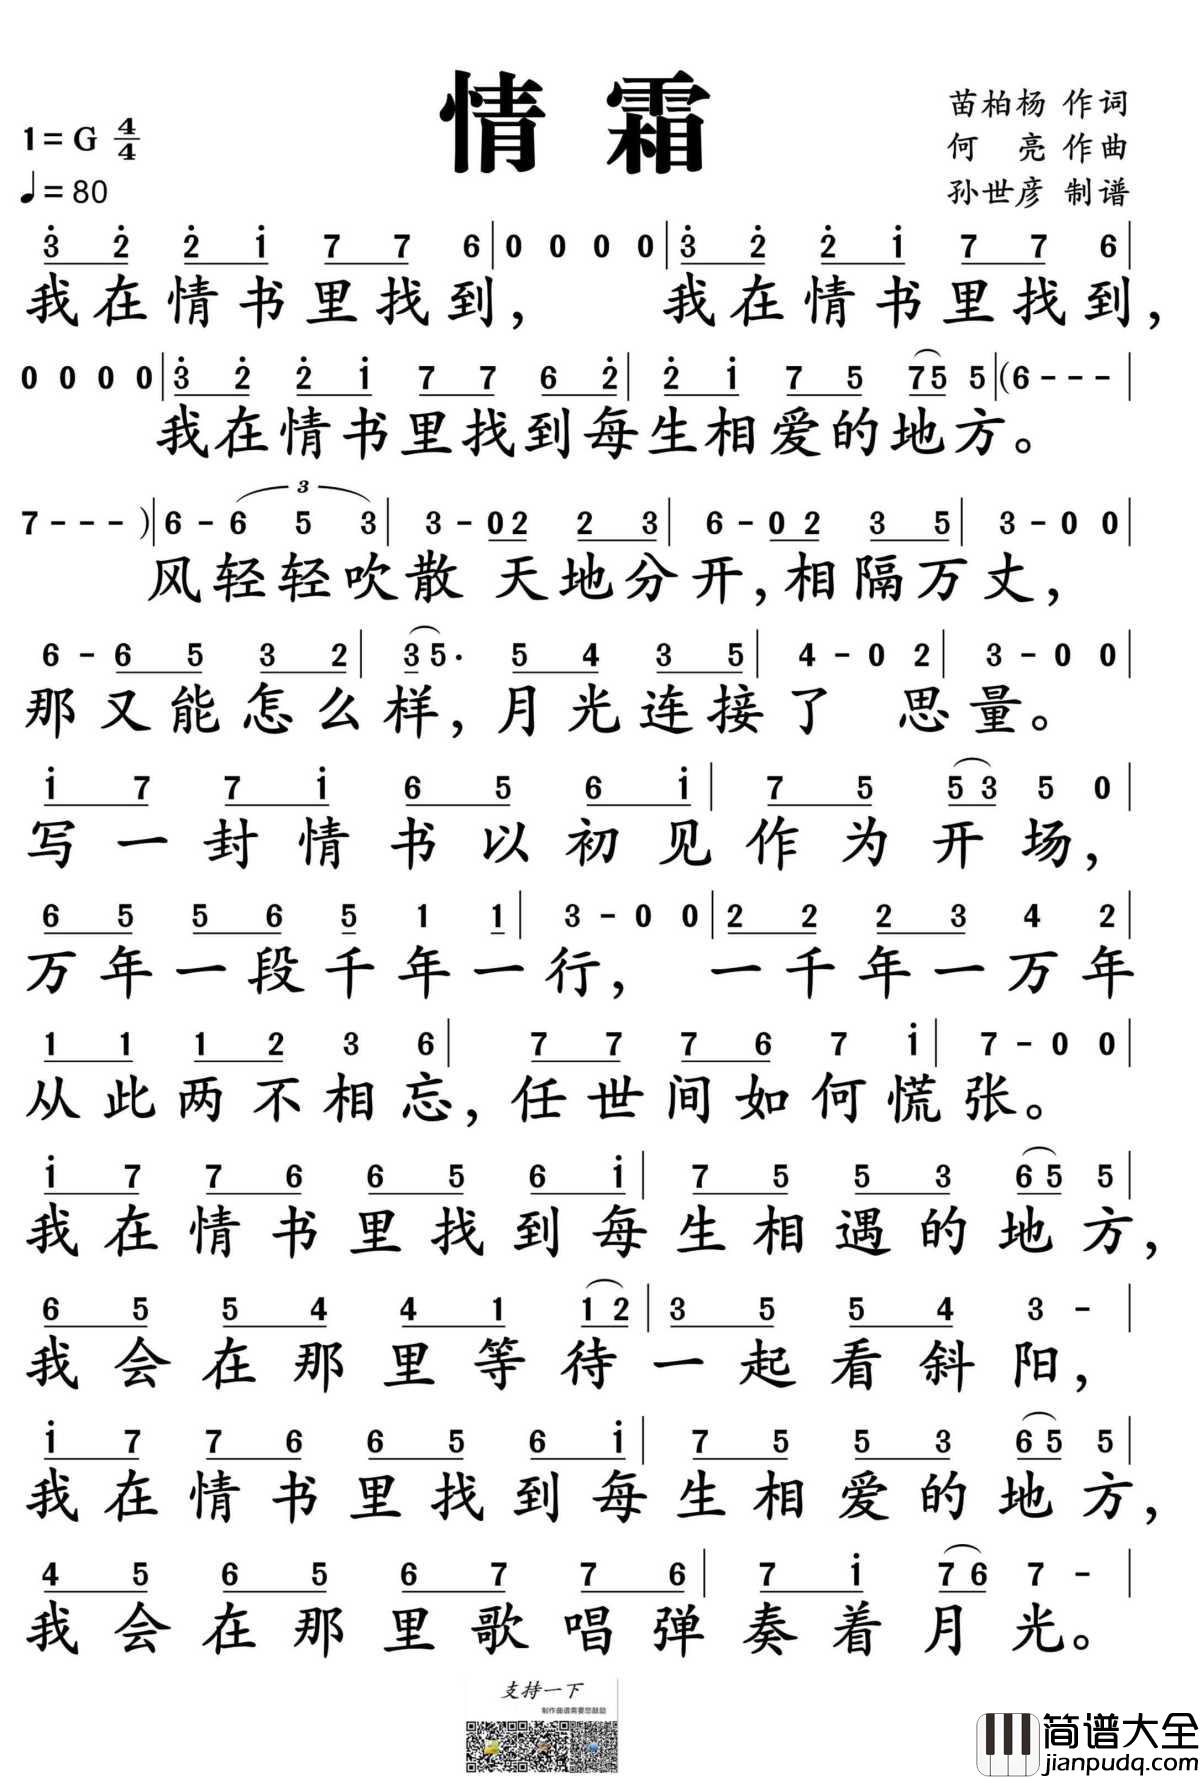 情 霜
1=G 4/4
♩=80
苗柏杨 作词
何 亮 作曲
孙世彦 制谱
3̇ 2̇ 2̇ 1̇ 7 7 6 | 0 0 0 0 | 3̇ 2̇ 2̇ 1̇ 7 7 6 |
我在情书里找到， 我在情书里找到，
0 0 0 0 | 3̇ 2̇ 2̇ 1̇ 7 7 6 2̇ | 2̇ 1̇ 7 5 75 5 | (6 - - - |
我在情书里找到每生相爱的地方。
7 - - - ) | 6 - 6 5 3 | 3 - 0 2 2 3 | 6 - 0 2 3 5 | 3 - 0 0 |
3
风轻轻吹散 天地分开，相隔万丈，
6 - 6 5 3 2 | 3 5· 5 4 3 5 | 4 - 0 2 | 3 - 0 0 |
那又能怎么样，月光连接了 思量。
1̇ 7 7 1̇ 6 5 6 1̇ | 7 5 5 3 5 0 |
写一封情书以初见作为开场，
6 5 5 6 5 1 1 | 3 - 0 0 | 2 2 2 3 4 2 |
万年一段千年一行， 一千年一万年
1 1 1 2 3 6 | 7 7 7 6 7 1̇ | 7 - 0 0 |
从此两不相忘，任世间如何慌张。
1̇ 7 7 6 6 5 6 1̇ | 7 5 5 3 6 5 5 |
我在情书里找到每生相遇的地方，
6 5 5 4 4 1 1 2 | 3 5 5 4 3 - |
我会在那里等待一起看斜阳，
1̇ 7 7 6 6 5 6 1̇ | 7 5 5 3 6 5 5 |
我在情书里找到每生相爱的地方，
4 5 6 5 6 7 7 6 | 7 1̇ 7 6 7 - |
我会在那里歌唱弹奏着月光。
支持一下
制作曲谱需要您鼓励
简谱大全
jianpudq.com